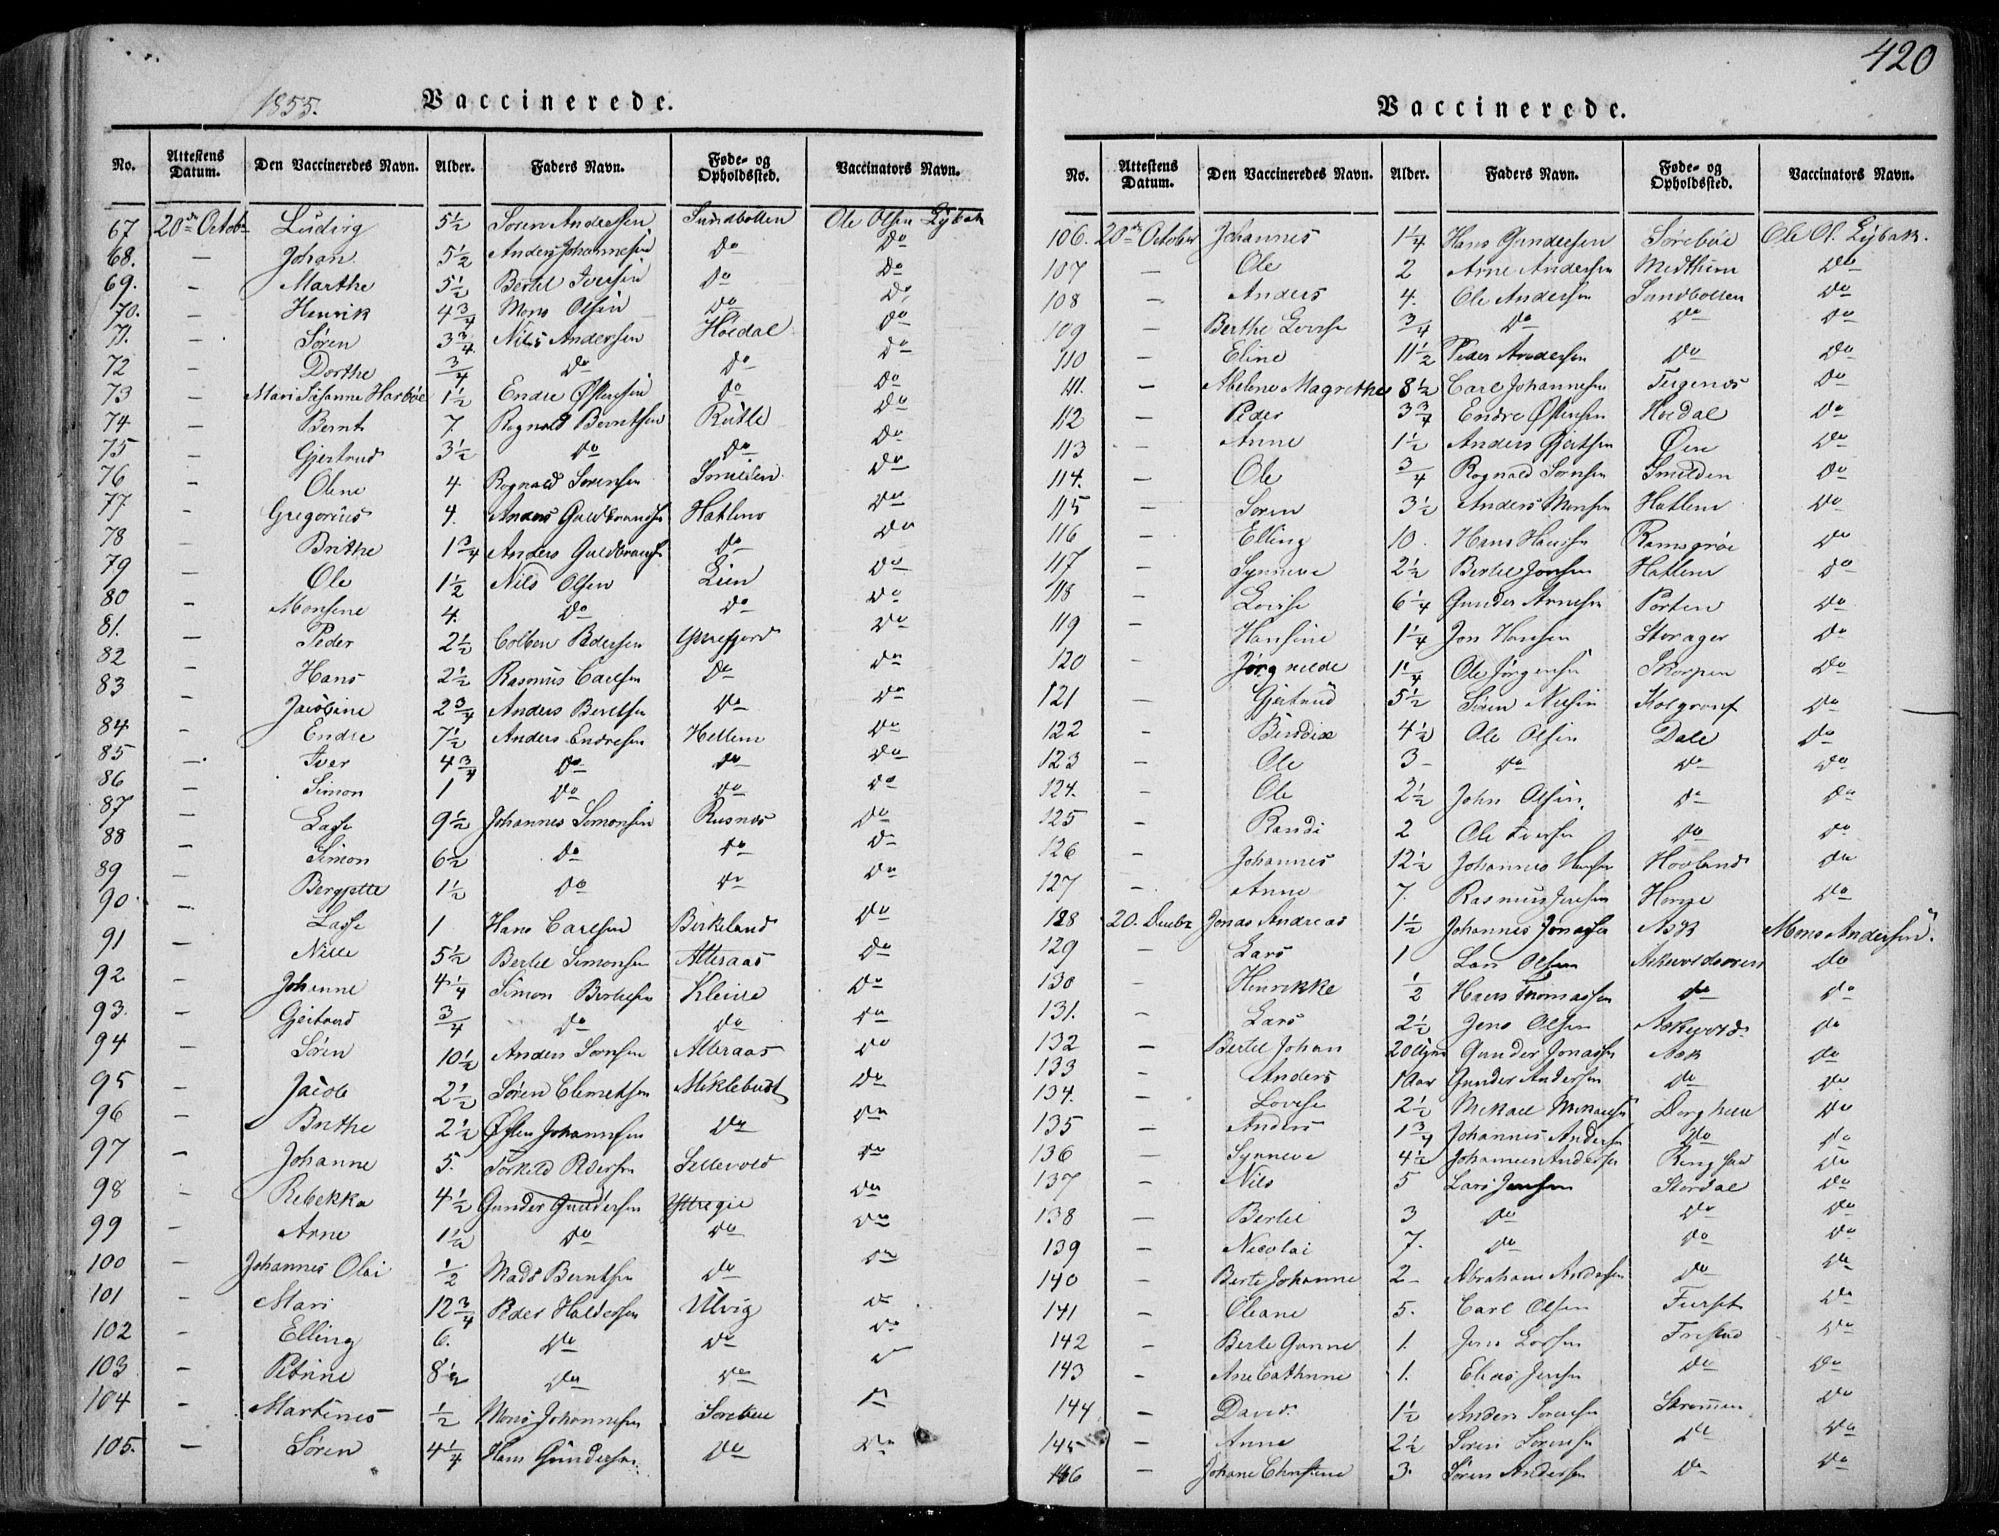 1855.
Vaccinerede.
No. Attestens Datum. Den Vaccineredes Navn. Alder. Faders Navn. Føde- og Opholdssted. Vaccinators Navn.
67 20de Octobr Ludvig 5½ Søren Anderssen Sundbotten Ole Olsen Lybak
68. — Johan 5½ Anders Johannesen Do Do
69. — Marthe 5½ Bertel Iversen Do Do
70. — Henrik 4¾ Mons Olsen Do Do
71. — Søren 3¾ Nils Andersen Høidal Do
72 — Dorthe ¾ Do Do Do
73 — Mari Susanne Harbøe 1½ Endre Østensen Do Do
74 — Bernt 7. Rognald Berntsen Rutle Do
75 — Gjertrud 3½ Do Do Do
76 — Olene 4 Rognald Sørensen Smilden Do
77. — Gregorius 4. Anders Guldbrandsen Hatlem Do
78 — Brithe 1¾ Anders Guldbrands Do Do
79 — Ole 1½ Nils Olsen Lien Do
80 — Monsine 4. Do Do Do
81. — Peder 2½ Colben Pedersen Yttrefjord Do
82 — Hans 2½ Rasmus Carlsen Do Do
83 — Jacobine 2¾ Anders Bertelsen Do Do
84 — Endre 7½ Anders Endresen Hellem Do
85 — Iver 4¾ Do Do Do
86 — Simon 1 Do Do Do
87 — Lasse 9½ Johannes Simonsen Rusnes Do
88 — Simon 6½ Do Do Do
89 — Bergjette 1½ Do Do Do
90 — Lasse 1 Hans Carlsen Birkeland Do
91 — Nille 5½ Bertel Simonsen Alteraas Do
92 — Johanne 4¼ Simon Bertelsen Kleive Do
93. — Gjertrud ¾ Do Do Do
94 — Søren 10½ Anders Sørensen Alteraas Do
95 — Jacob 2½ Søren Clemetsen Miklebust Do
96 — Brithe 2½ Østen Johannesen Do Do
97 — Johanne 5. Torkild Pedersen Sellevold Do
98 — Rebekka 4½ Gunder Gundersen Do
99 — Arne 1½ Do Do Do
100 — Johannes Olai ½ Mads Berntsen Do Do
101 — Mari 12¾ Peder Haldorsen Ulvig Do
102 — Elling 6. Do Do Do
103 — Petrine 8½ Do Do
104 — Martines ½ Mons Johannesen Sørebøe
105. — Søren 4¼ Hans Gundersen Do Do
420
Vaccinerede.
No. Attestens Datum. Den Vaccineredes Navn. Alder. Faders Navn. Føde- og Opholdssted. Vaccinators Navn.
106. 20de October Johannes 1¼ Hans Gundersen Sørebøe Ole O. Lybak.
107 — Ole 2 Arne Andersen Medthun Do
108 — Anders 4. Ole Andersen Sundbotten Do
109 — Berthe Lovise ¾ Do Do Do
110 — Eline 11½ Peder Andersen Do Do
111. — Abelone Magrethe 8½ Carl Johannesen Do
112 — Peder 3¾ Endre Østensen Høidal Do
113 — Anne 1½ Anders Gjertsen Øen Do
114. — Ole ¾ Rognald Sørensen Smilden Do
115 — Søren 3½ Anders Monsen Hatlem Do
116 — Elling 10. Hans Hansen Ramsgrøe Do
117 — Synneve 2½ Bertel Jonsen Hatlem Do
118 — Lovise 6¼ Gunder Arnesen Porten Do
119 — Hansine 1¼ Jon Hansen Storager Do
120 — Jørgnelde 1¼ Ole Jørgensen Skorpen Do
121 — Gjertrud 5½ Søren Nilsen Do
122 — Bendix 4½ Ole Olsen Dale Do
123 — Ole 3 — Do Do Do
124. — Ole 2½ John Olsen. Do Do
125 — Randi 2 Ole Iversen Do Do
126 — Johannes 12½ Johannes Hansen Hovland Do
127 — Anne 7. Rasmus Jensen Do
128 20. Decbr Jonas Andreas 1½ Johannes Jonassen Ask Mons Andersen.
129 — Lars 1 Lars Olsen Do
130 — Henrikke ½ Hans Thomassen Do Do
131. — Lars 2½ Jens Olsen Askevold Do
132 — Bertel Johan 20 Ugr Gunder Jonassen Ask Do
133 — Anders 1 Aar Gunder Andersen Do Do
134. — Lovise 2½ Mikael Mikaelsen Do
135 — Anders 1¾ Johannes Andersen Do Do
136 — Synneve 4½ Johannes Andersen Ringstad Do
137 — Nils 5 Lars Jensen Stordal Do
138 — Bertel 3 Do Do Do
139 — Nicolai 7. Do Do Do
140 — Berte Johanne 2 — Abraham Andersen Do Do
141 — Oleane 5. Carl Olsen Furset Do
142 — Berte Gunne 1. Jens Larsen Fristad Do
143 — Ane Cathrine 1. Elias Jensen Do Do
144 — David. 1½ Anders Sørensen Do
145 — Anne 2½ Søren Sørensen Do Do
146 — Johane Christine 3. Søren Andersen Do Do